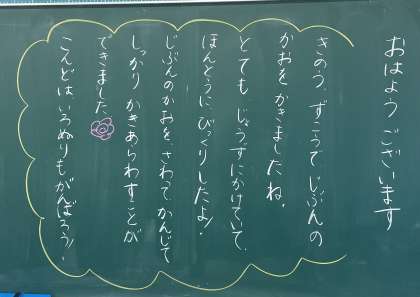 おはよう ございます
きのう、ずこうで じぶんの
かおを かきましたね。
とても じょうずにかけていて、
ほんとうに、びっくりしたよ！
じぶんのかおを、さわって、かんじて
しっかり かきあらわすことが
できました。
こんどは、いろぬりもがんばろう！